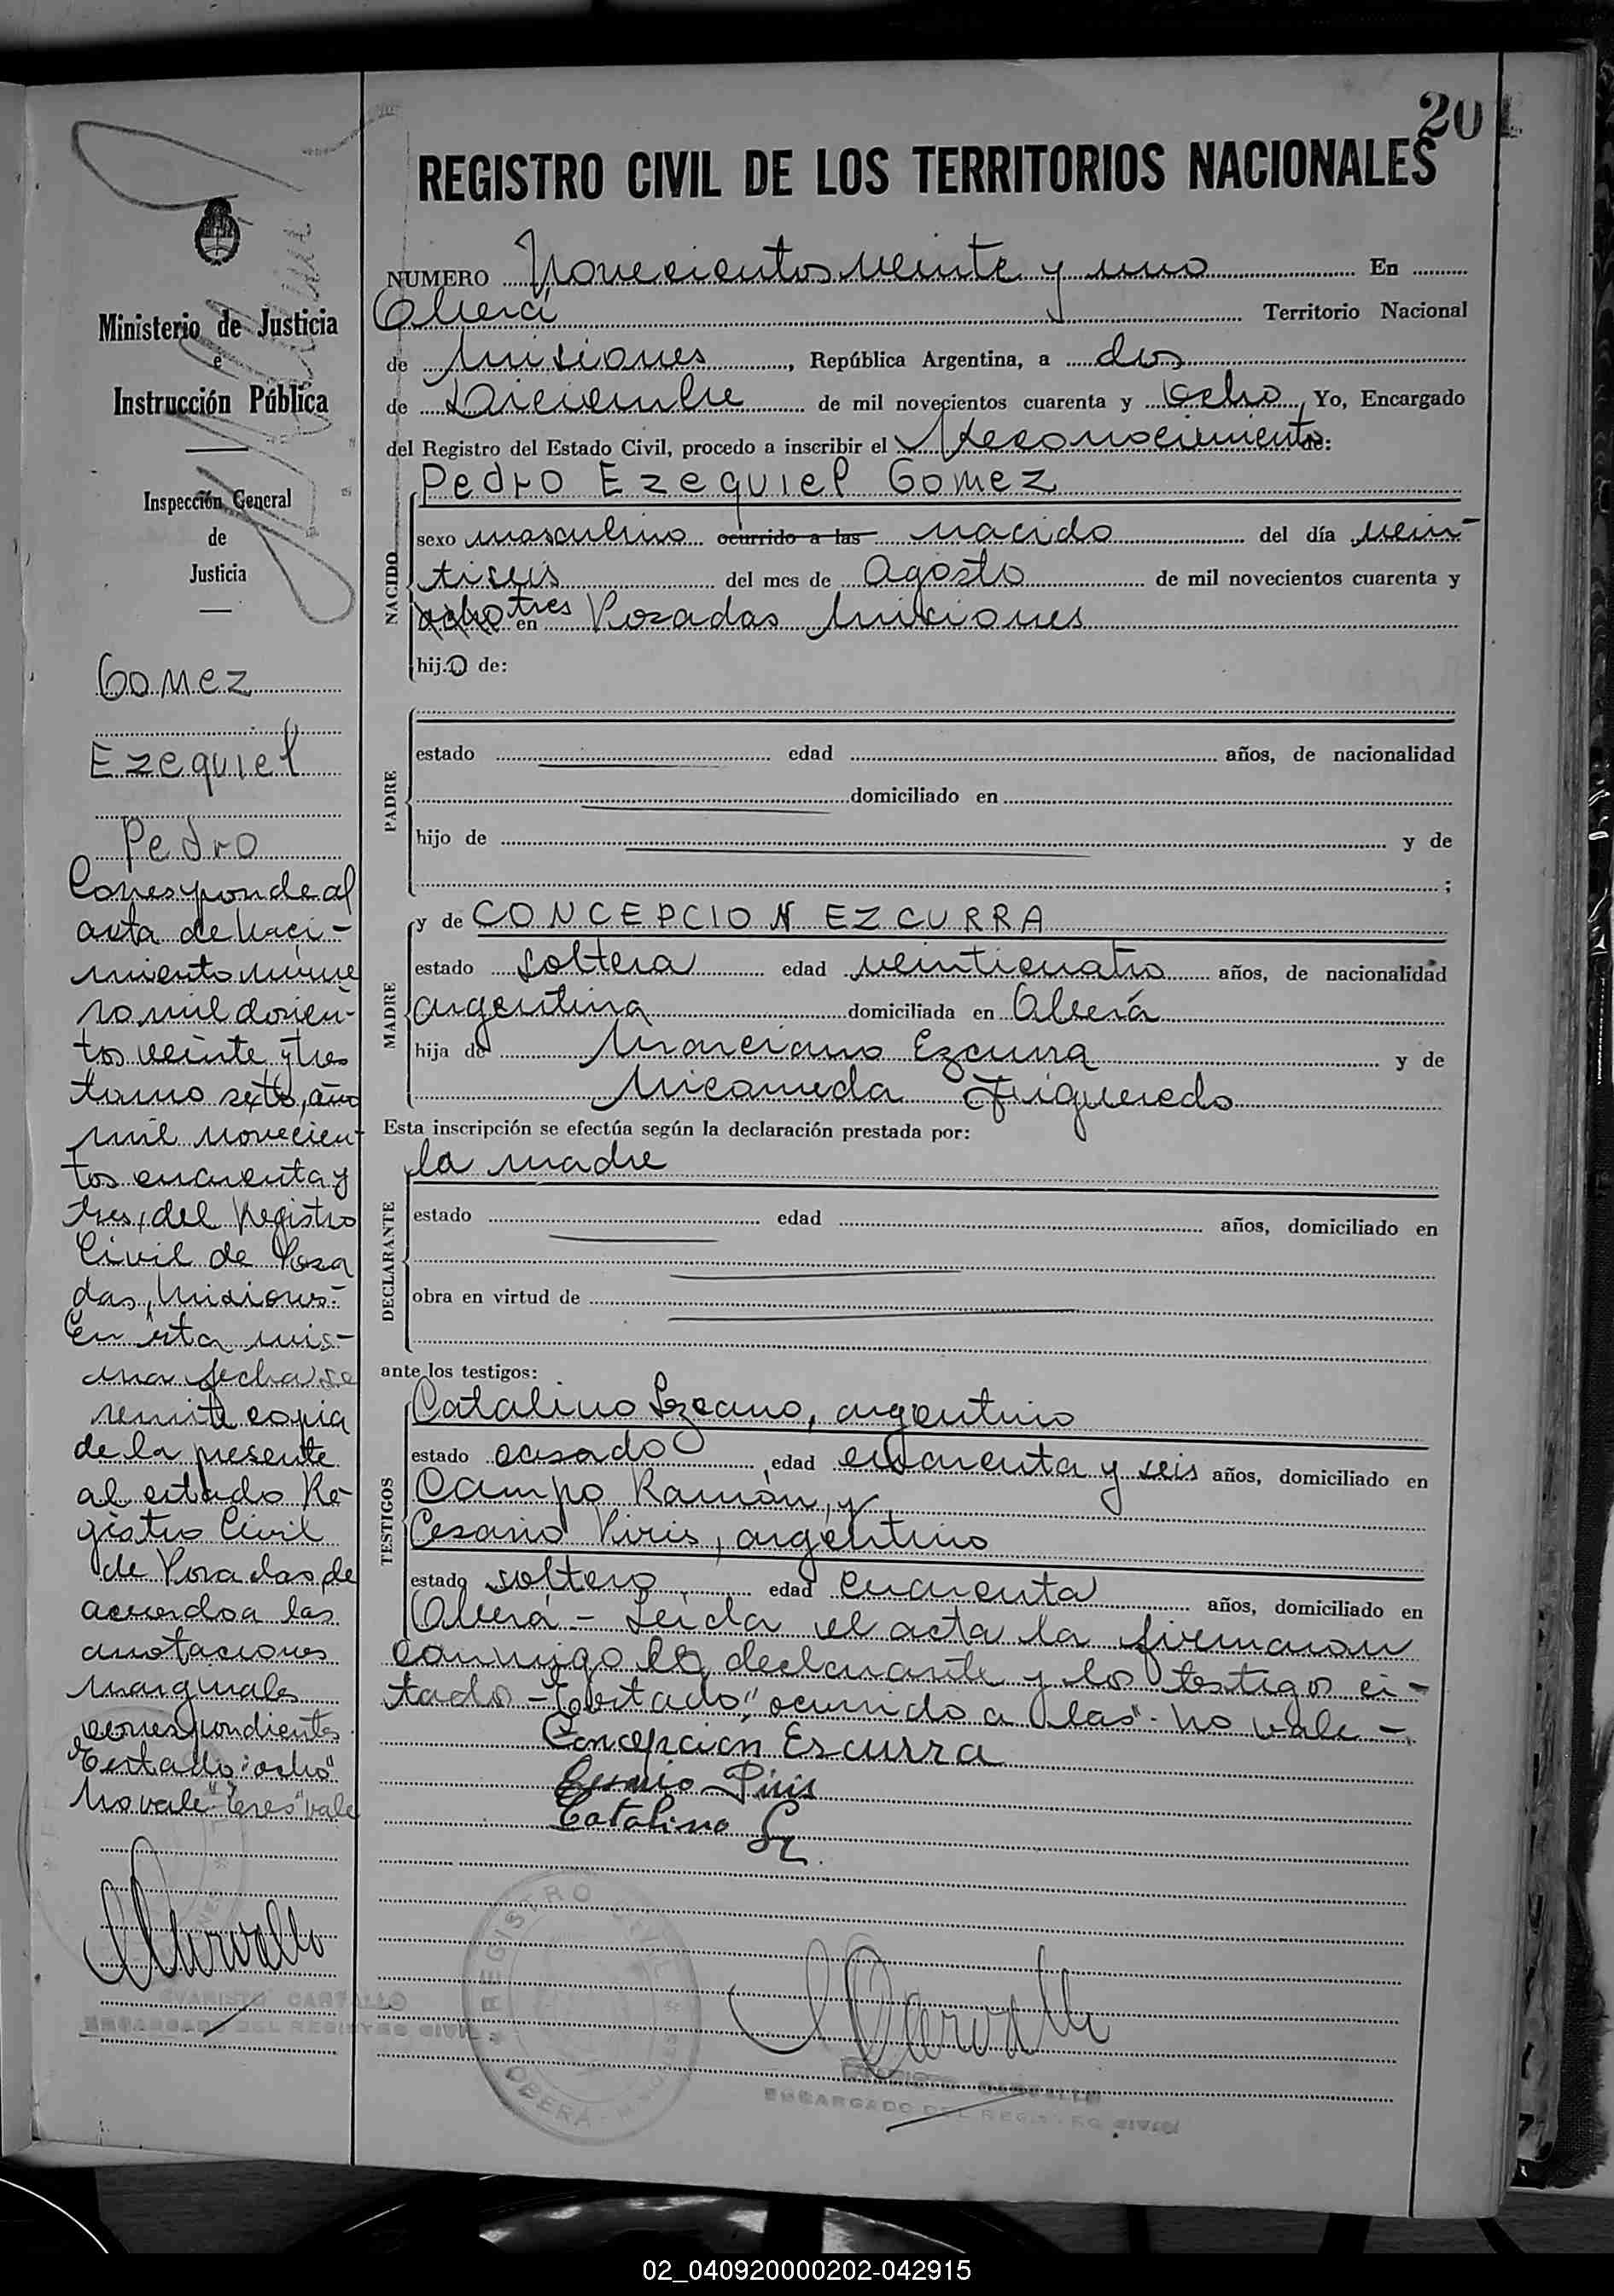 20
REGISTRO CIVIL DE LOS TERRITORIOS NACIONALES
NUMERO Novecientos veinte y uno En
Oberá Territorio Nacional
de Misiones, República Argentina, a dos
de Diciembre de mil novecientos cuarenta y ocho, Yo, Encargado
del Registro del Estado Civil, procedo a inscribir el Reconocimiento de:
NACIDO
Pedro Ezequiel Gomez
sexo masculino ocurrido a las nacido del día vein-
tiseis del mes de Agosto de mil novecientos cuarenta y
ocho tres en Posadas Misiones
hijo de:
PADRE
estado edad años, de nacionalidad
domiciliado en
hijo de y de
;
MADRE
y de CONCEPCION EZCURRA
estado soltera edad veinticuatro años, de nacionalidad
argentina domiciliada en Oberá
hija de Marciano Ezcurra y de
Nicomeda Figueredo
Esta inscripción se efectúa según la declaración prestada por:
DECLARANTE
la madre
estado edad años, domiciliado en
obra en virtud de
ante los testigos:
TESTIGOS
Catalino Lezcano, argentino
estado casado edad cuarenta y seis años, domiciliado en
Campo Ramón, y
Cesario Piris, argentino
estado soltero edad cuarenta años, domiciliado en
Oberá - Leida el acta la firmaron
conmigo la declarante y los testigos ci-
tado - Testado "ocurrido a las" - no vale -
Concepcion Escurra
Cesario Piris
Catalino
REGISTRO CIVIL
OBERÁ - MISIONES
ENCARGADO DEL REGISTRO CIVIL
Ministerio de Justicia
e
Instrucción Pública
Inspección General
de
Justicia
Gomez
Ezequiel
Pedro
Corresponde al
acta de naci-
miento núme
ro mil dosien-
tos veinte y tres
tomo sexto, año
mil novecien-
tos cuarenta y
tres, del Registro
Civil de Posa
das, Misiones.-
En esta mis-
ma fecha se
remite copia
de la presente
al estado Re-
gistro Civil
de Posadas, de
acuerdo a las
anotaciones
marginales
correspondientes.
Testado: "ocho"
No vale - "tres" vale
EVARISTO CARVALLO
ENCARGADO DEL REGISTRO CIVIL
02_040920000202-042915